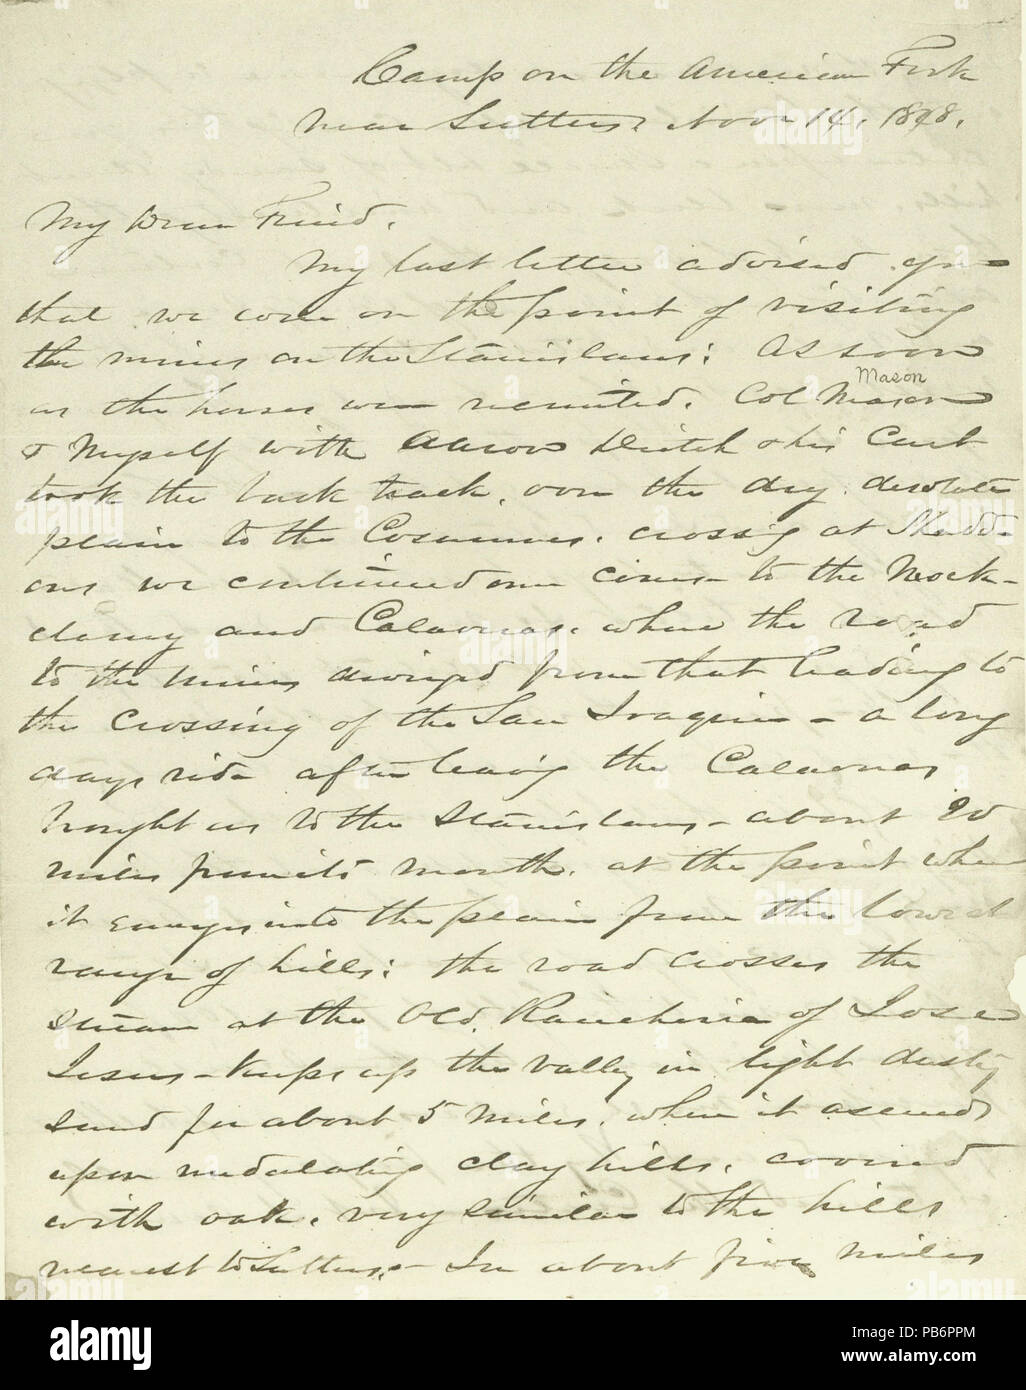 Camp on the American Fork
Near Sutters, Nov 14, 1848.
My Dear Friend,
My last letter advised you
that we were on the point of visiting
the mines on the Stanislaus: As soon
Mason
as the horses were recruited, Col Mason
& Myself with Aaron & his Cart
took the back track, over the dry desolate
plain to the Cosumnes, crossing at
we continued our course to the Mock-
elamy and Calaveras, where the road
to the mines diverged from that leading to
the crossing of the San Joaquin - a long
days ride after leaving the Calaveras
brought us to the Stanislaus - about 20
miles from its mouth, at the point where
it emerges into the plain from the lowest
range of hills; the road crosses the
Stream at the Old Rancheria of José
Jesus - keeps up the valley in light dusty
sand for about 5 miles, when it ascends
upon undulating clay hills, covered
with oak, very similar to the hills
nearest to Sutters, - In about five miles
alamy
alamy
Image ID: PB6PPM
www.alamy.com